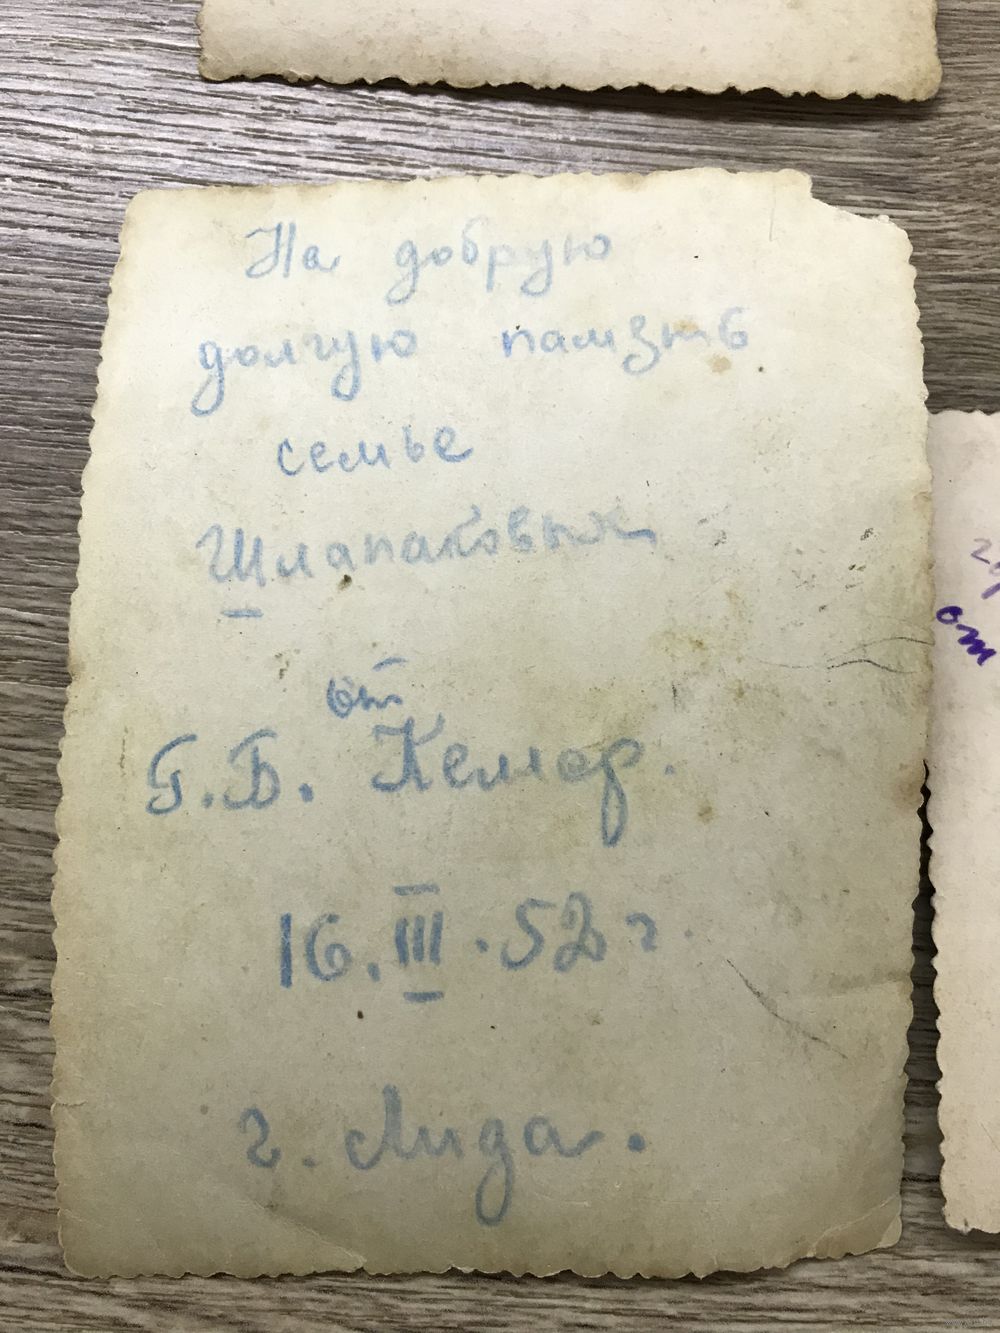 На добрую
долгую память
семье
Шлапаковых
от
Г.Б. Келлер.
16.III.52 г.
г. Лида.
от